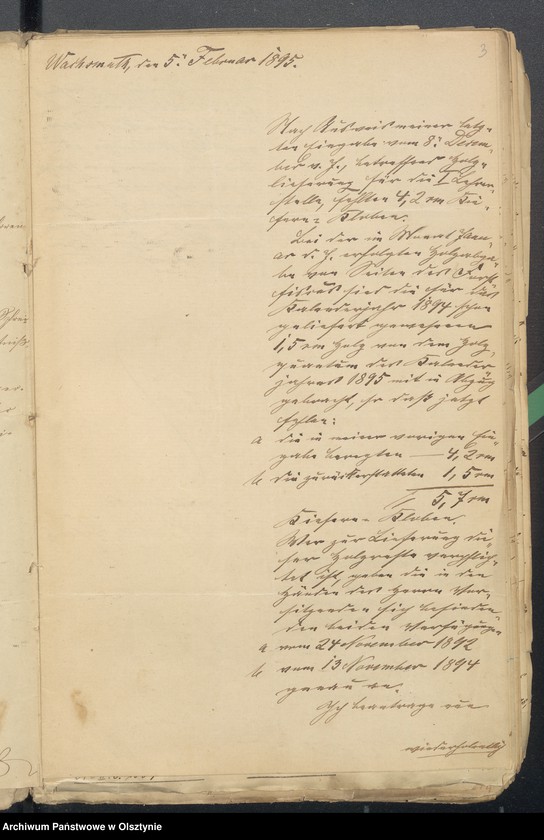 3
Wachsmuth, den 5. Februar 1895.
Nach Ausweis meiner letz-
ten Eingabe vom 8. Dezem-
ber v. J., betreffend Holz-
lieferung für die I Lehrer-
stelle, fehlten 4,2 rm Kie-
fern-Kloben.
Bei der im Monat Janu-
ar d. J. erfolgten Holzabga-
be von Seiten des Forst-
fiskus sind die für das
Kalenderjahr 1894 schon
geliefert gewesenen
1,5 rm Holz von dem Holz-
quantum des Kalender-
jahres 1895 mit in Abzug
gebracht, so daß jetzt
fehlen:
a die in meiner vorigen Ein-
gabe beregten — 4,2 rm
b die zurückerstatteten 1,5 rm
5,7 rm
Kiefern-Kloben.
Wer zur Lieferung die-
ser Holzreste verpflich-
tet ist, geben die in den
Händen des Herrn Vor-
sitzenden sich befinden-
den beiden Verfügungen
a vom 24 November 1892
b vom 13 November 1894
genau an.
Ich beantrage nun
wiederholentlich
Archiwum Państwowe w Olsztynie